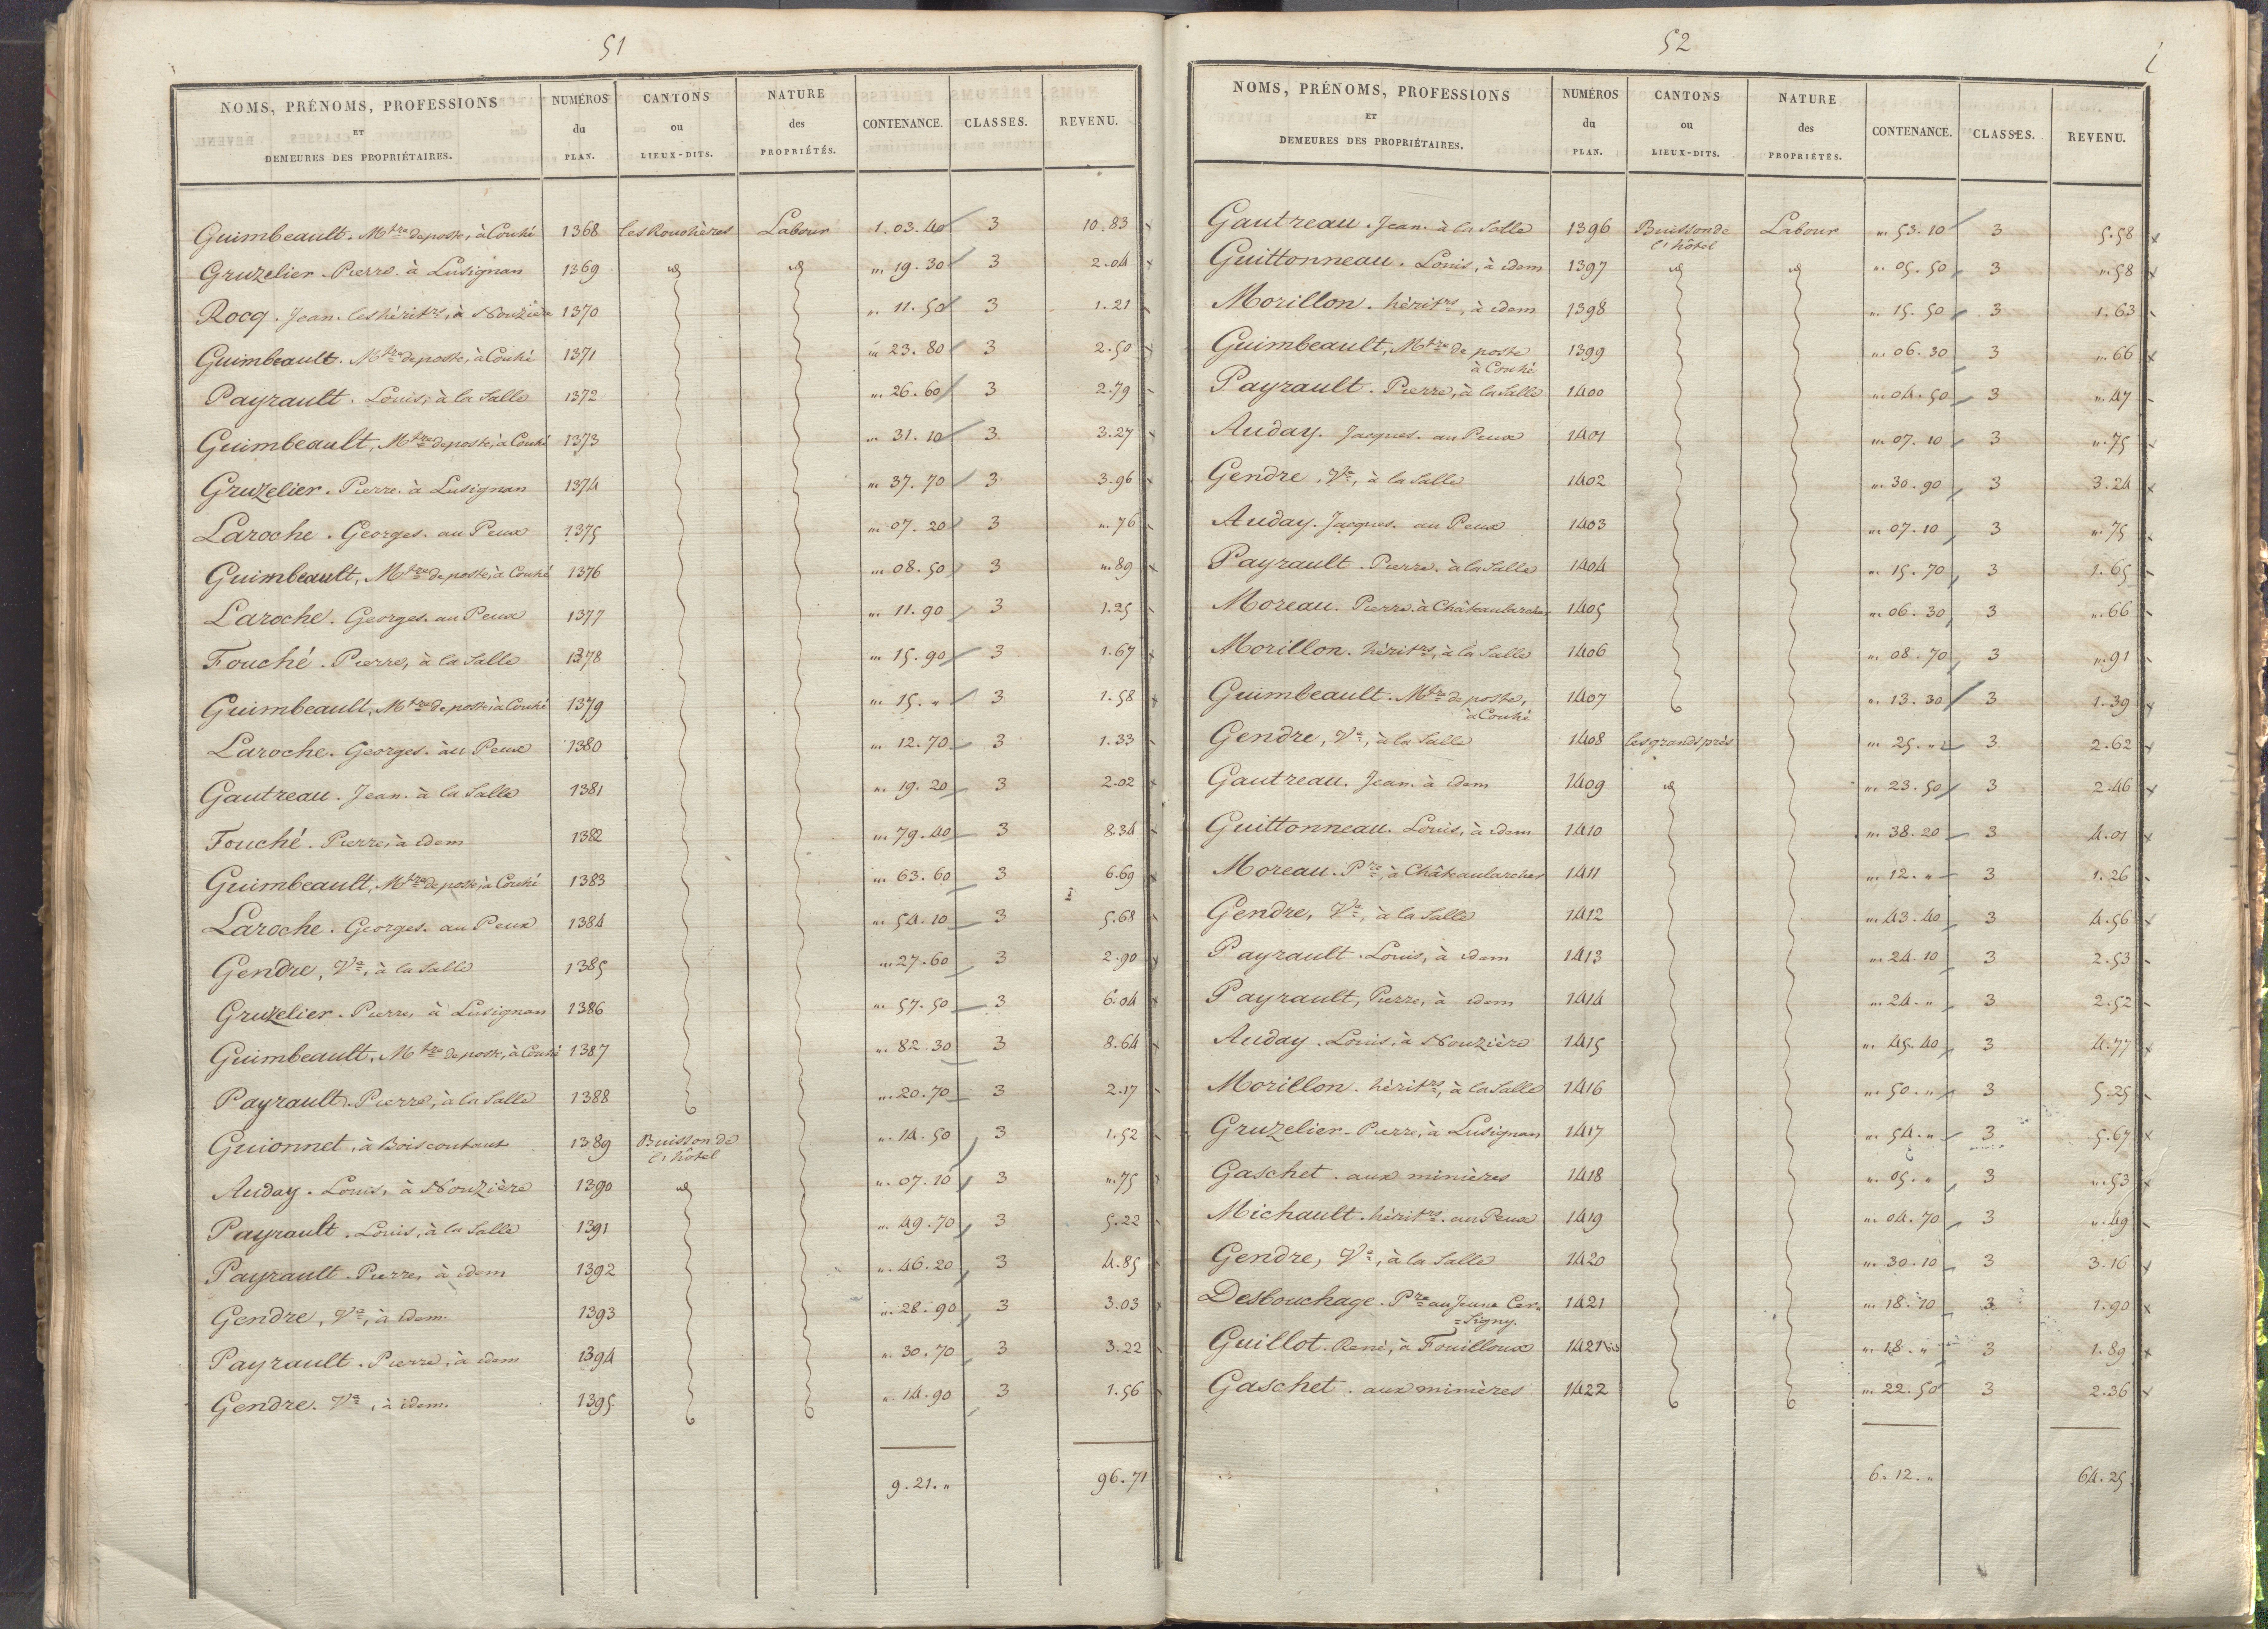 51
NOMS, PRÉNOMS, PROFESSIONS ET DEMEURES DES PROPRIÉTAIRES. NUMÉROS du PLAN. CANTONS ou LIEUX-DITS. NATURE des PROPRIÉTÉS. CONTENANCE. CLASSES. REVENU.
Guimbeault. Mtre de poste, à Couhé 1368 les Rouchères Labour 1.03.40 3 10.83
Gruzelier. Pierre. à Lusignan 1369 id id ". 19.30 3 2.04
Rocq. Jean. les héritrs, à Nouzière 1370 ". 11.50 3 1.21
Guimbeault. Mtre de poste, à Couhé 1371 ". 23.80 3 2.50
Payrault. Louis, à la Salle 1372 ". 26.60 3 2.79
Guimbeault, Mtre de poste, à Couhé 1373 ". 31.10 3 3.27
Gruzelier. Pierre. à Lusignan 1374 ". 37.70 3 3.96
Laroche. Georges. au Peux 1375 ". 07.20 3 ".76
Guimbeault, Mtre de poste, à Couhé 1376 ". 08.50 3 ".89
Laroche. Georges. au Peux 1377 ". 11.90 3 1.25
Fouché. Pierre, à la Salle 1378 ". 15.90 3 1.67
Guimbeault, Mtre de poste, à Couhé 1379 ". 15. " 3 1.58
Laroche. Georges. au Peux 1380 ". 12.70 3 1.33
Gautreau. Jean. à la Salle 1381 ". 19.20 3 2.02
Fouché. Pierre, à idem 1382 ". 79.40 3 8.34
Guimbeault, Mtre de poste, à Couhé 1383 ". 63.60 3 6.69
Laroche. Georges. au Peux 1384 ". 54.10 3 5.68
Gendre, Ve, à la Salle 1385 ". 27.60 3 2.90
Gruzelier. Pierre, à Lusignan 1386 ". 57.50 3 6.04
Guimbeault, Mtre de poste, à Couhé 1387 ". 82.30 3 8.64
Payrault. Pierre, à la Salle 1388 ". 20.70 3 2.17
Guionnet, à Boiscoutant 1389 Buisson de ". 14.50 3 1.52
l'hôtel
Auday. Louis, à Nouzière 1390 id ". 07.10 3 ".75
Payrault. Louis, à la Salle 1391 ". 49.70 3 5.22
Payrault. Pierre, à idem 1392 ". 46.20 3 4.85
Gendre, Ve, à idem. 1393 ". 28.90 3 3.03
Payrault. Pierre, à idem 1394 ". 30.70 3 3.22
Gendre. Ve, à idem. 1395 ". 14.90 3 1.56
9.21. " 96.71
52
NOMS, PRÉNOMS, PROFESSIONS ET DEMEURES DES PROPRIÉTAIRES. NUMÉROS du PLAN. CANTONS ou LIEUX-DITS. NATURE des PROPRIÉTÉS. CONTENANCE. CLASSES. REVENU.
Gautreau. Jean. à la Salle 1396 Buisson de Labour ". 53.10 3 5.58
l'hôtel
Guittonneau. Louis, à idem 1397 id id ". 05.50 3 ".58
Morillon. héritrs, à idem 1398 ". 15.50 3 1.63
Guimbeault, Mtre de poste 1399 ". 06.30 3 ".66
à Couhé
Payrault. Pierre, à la Salle 1400 ". 04.50 3 ".47
Auday. Jacques. au Peux 1401 ". 07.10 3 ".75
Gendre, Ve, à la Salle 1402 ". 30.90 3 3.24
Auday. Jacques. au Peux 1403 ". 07.10 3 ".75
Payrault. Pierre. à la Salle 1404 ". 15.70 3 1.65
Moreau. Pierre. à Châteaularcher 1405 ". 06.30 3 ".66
Morillon. héritrs, à la Salle 1406 ". 08.70 3 ".91
Guimbeault. Mtre de poste, 1407 ". 13.30 3 1.39
à Couhé
Gendre, Ve, à la Salle 1408 les grands prés ". 25. " 3 2.62
Gautreau. Jean. à idem 1409 id ". 23.50 3 2.46
Guittonneau. Louis, à idem 1410 ". 38.20 3 4.01
Moreau. Pre, à Châteaularcher 1411 ". 12. " 3 1.26
Gendre, Ve, à la Salle 1412 ". 43.40 3 4.56
Payrault. Louis, à idem 1413 ". 24.10 3 2.53
Payrault, Pierre, à idem 1414 ". 24. " 3 2.52
Auday. Louis, à Nouzière 1415 ". 45.40 3 4.77
Morillon. héritrs, à la Salle 1416 ". 50. " 3 5.25
Gruzelier. Pierre, à Lusignan 1417 ". 54. " 3 5.67
Gaschet. aux minières 1418 ". 05. " 3 ".53
Michault. héritrs. au Peux 1419 ". 04.70 3 ".49
Gendre, Ve, à la Salle 1420 ". 30.10 3 3.16
Desbouchage. Pre au Jeune Cer= 1421 ". 18.10 3 1.90
=signy.
Guillot. René, à Fouilloux 1421 bis ". 18. " 3 1.89
Gaschet. aux minières 1422 ". 22.50 3 2.36
6.12. " 64.25